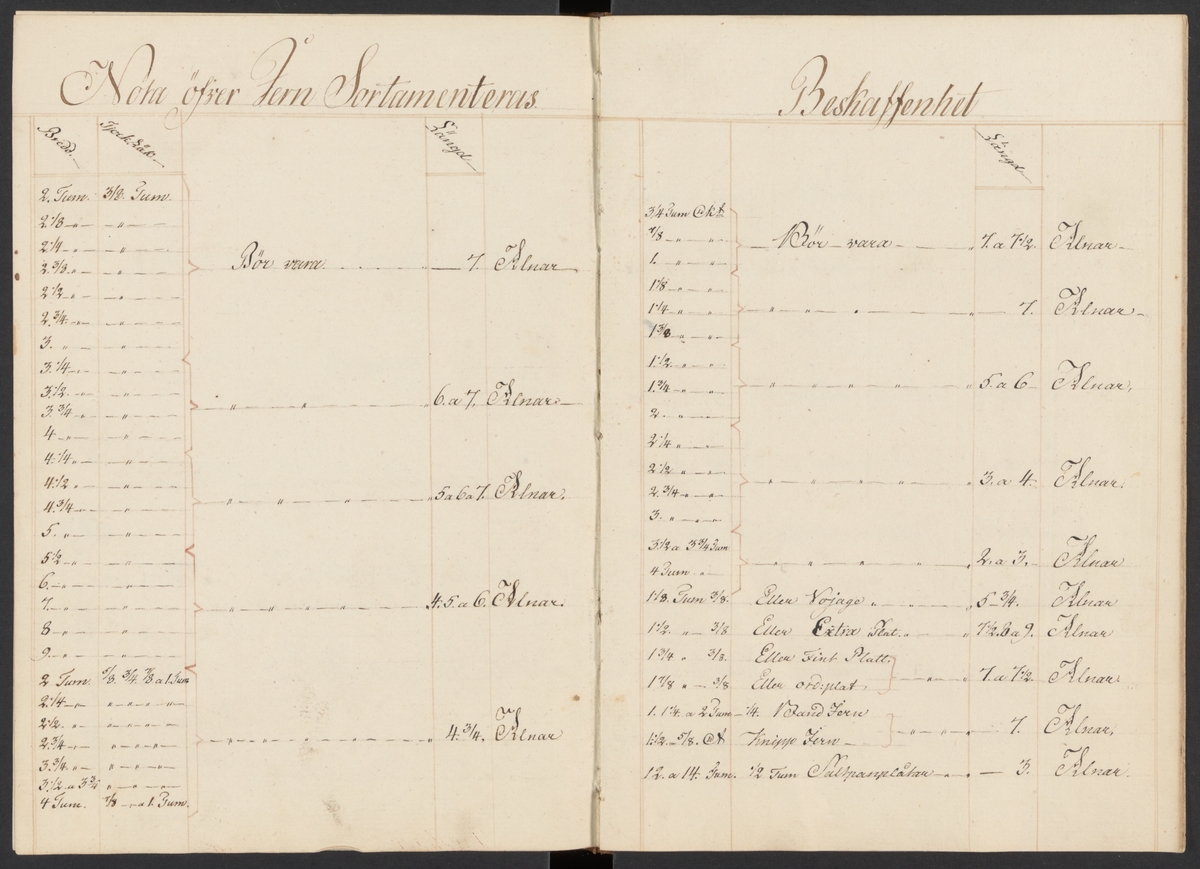 Nota öfver Jern Sortamenterus
Bredd. Tjock:Läk. Längd
2. Tum. 3/8. Tum.
2 1/8 " — — " — —
2 1/4 " — — " — —
2. 3/8. " — — " — — Bör vara 7. Alnar
2 1/2 " — — " — —
2. 3/4. " — — " — —
3. " — — " — —
3. 1/4 — — " — —
3. 1/2. " — — " — — " " 6. a 7. Alnar.
3. 3/4 " — — " — —
4 — " — — " — —
4. 1/4 " — — " — —
4. 1/2 — — " — — " " " " 5 a 6 a 7. Alnar.
4. 3/4 " — — " — —
5. " — — " — —
5 1/2 " — — " — —
6. " — — " — —
7. " — — " — — " " " " 4. 5. a 6. Alnar.
8 — " — — " — —
9. " — — " — —
2 Tum. 5/8. 3/4. 7/8 a 1. Tum
2 1/4 — " — " — " — "
2 1/2. " — " — " — "
2. 3/4 " — " — " — " " " " " 4. 3/4. Alnar
3. 3/4. " — " — " — "
3 1/2. a 3 3/4 " — " — "
4 Tum. 7/8 — " a 1. Tum.
Beskaffenhet
Längd
3/4 Tum
7/8 — " — " Bör vara 7. a 7 1/2. Alnar
1. — " — "
1 1/8 — " — "
1 1/4 — " — " " " " " 7. Alnar
1 3/8 — " — "
1 1/2 — " — "
1. 3/4 — " — " " " " " 5. a 6 Alnar.
2. — " — "
2 1/4 — " — "
2 1/2 — " — " " " " " 3. a 4. Alnar.
2. 3/4 — " — "
3. " — " — "
3 1/2 a 3 3/4 Tum
4 Tum — " " " " " 2. a 3. Alnar
1 1/8. Tum 3/8. Eller Vojage " " 5 3/4. Alnar
1 1/2. " — 3/8 Eller Extra Plat. " " 7 1/2. 8 a 9. Alnar
1 3/4 " 3/8. Eller Fint Platt.
1 7/8 " — 3/8 Eller ord: plat " " 7. a 7 1/2. Alnar.
1. 1 1/4. a 2 Tum — 1/4. Band Jern
1 1/2. — 5/8. Knipp Jern " " 7. Alnar.
12. a 14 Tum. 1/2 Tum Saltpanplåtar " " 3. Alnar.